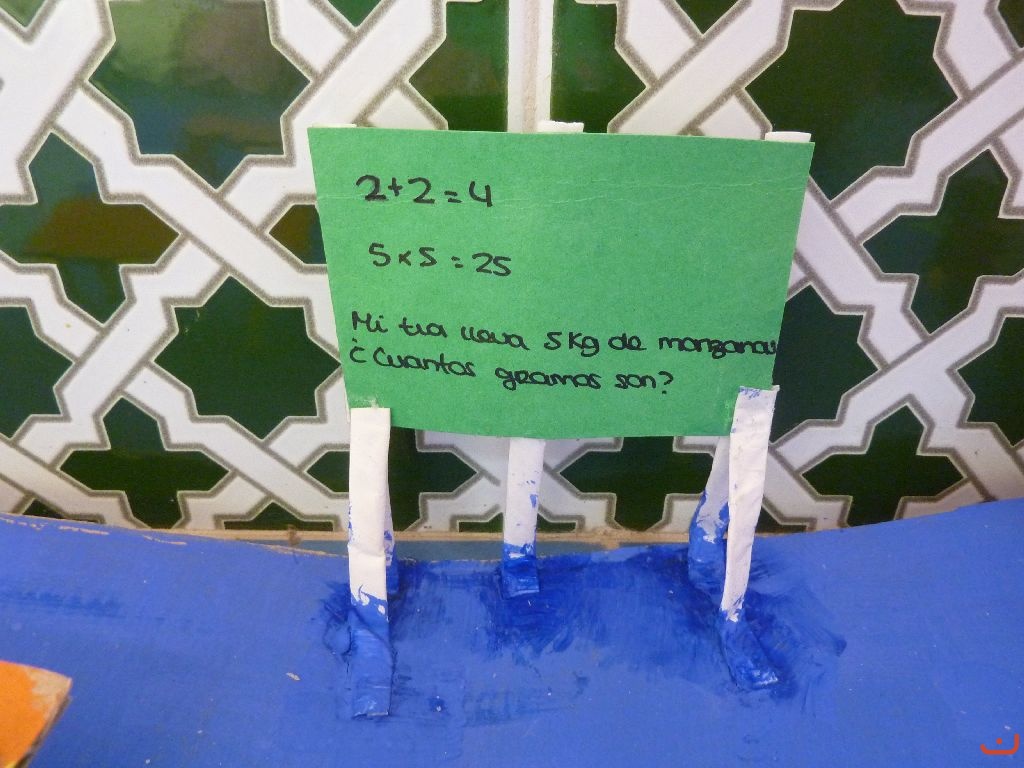 2+2=4
5x5=25
Mi tia lleva 5Kg de manzanas
¿Cuantos gramos son?